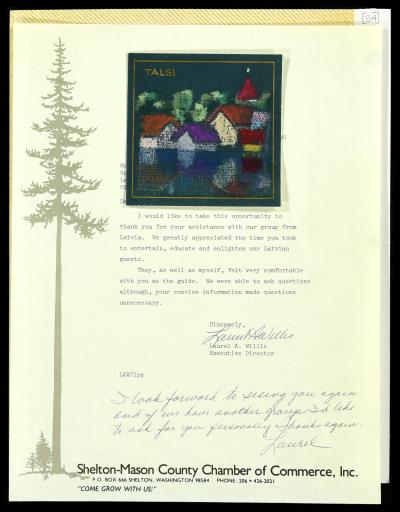 34
TALSI
I would like to take this opportunity to
thank you for your assistance with our group from
Latvia. We greatly appreciated the time you took
to entertain, educate and enlighten our Latvian
guests.
They, as well as myself, felt very comfortable
with you as the guide. We were able to ask questions
although, your concise information made questions
unnecessary.
Sincerely,
Laurel A Willis
Laurel A. Willis
Executive Director
LAW/lpp
I look forward to seeing you again
and if we have another group I'd like
to ask for you personally. Thanks again.
Laurel
Shelton-Mason County Chamber of Commerce, Inc.
P O BOX 666 SHELTON, WASHINGTON 98584 PHONE: 206 • 426-2021
"COME GROW WITH US!"